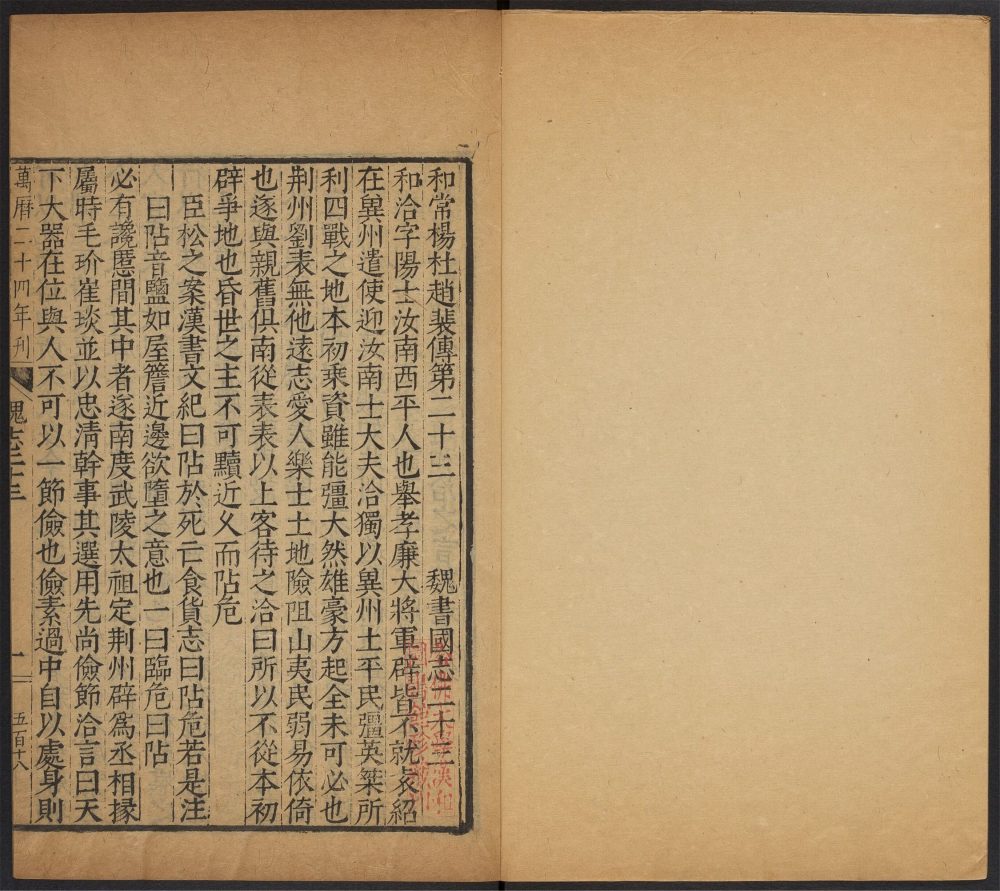 和常楊杜趙裴傳第二十三　魏書國志二十三
和洽字陽士汝南西平人也舉孝廉大將軍辟皆不就袁紹
在兾州遣使迎汝南士大夫洽獨以兾州土平民彊英桀所
利四戰之地本初乘資雖能彊大然雄豪方起全未可必也
荆州劉表無他遠志愛人樂士土地險阻山夷民弱易依倚
也遂與親舊俱南從表表以上客待之洽曰所以不從本初
辟爭地也昏世之主不可黷近乆而阽危
臣松之案漢書文紀曰阽於死亡食貨志曰阽危若是注
曰阽音鹽如屋簷近邊欲墮之意也一曰臨危曰阽
必有讒慝間其中者遂南度武陵太祖定荆州辟爲丞相掾
屬時毛玠崔琰並以忠清幹事其選用先尚儉節洽言曰天
下大器在位與人不可以一節儉也儉素過中自以處身則
萬曆二十四年刋
魏志二十三
一
五百十八